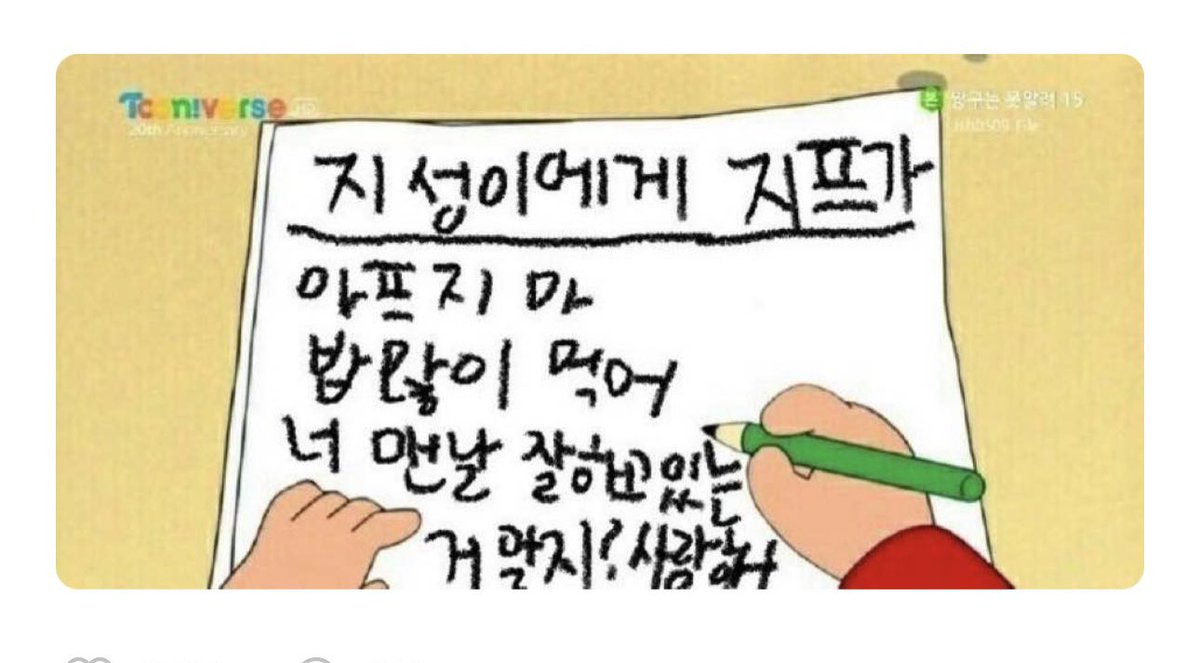 Tooniverse HD
20th Anniversary
본 짱구는 못말려 15
지성이에게 지프가
아프지 마
밥많이 먹어
너 맨날 잘하고있는
거 알지? 사랑해